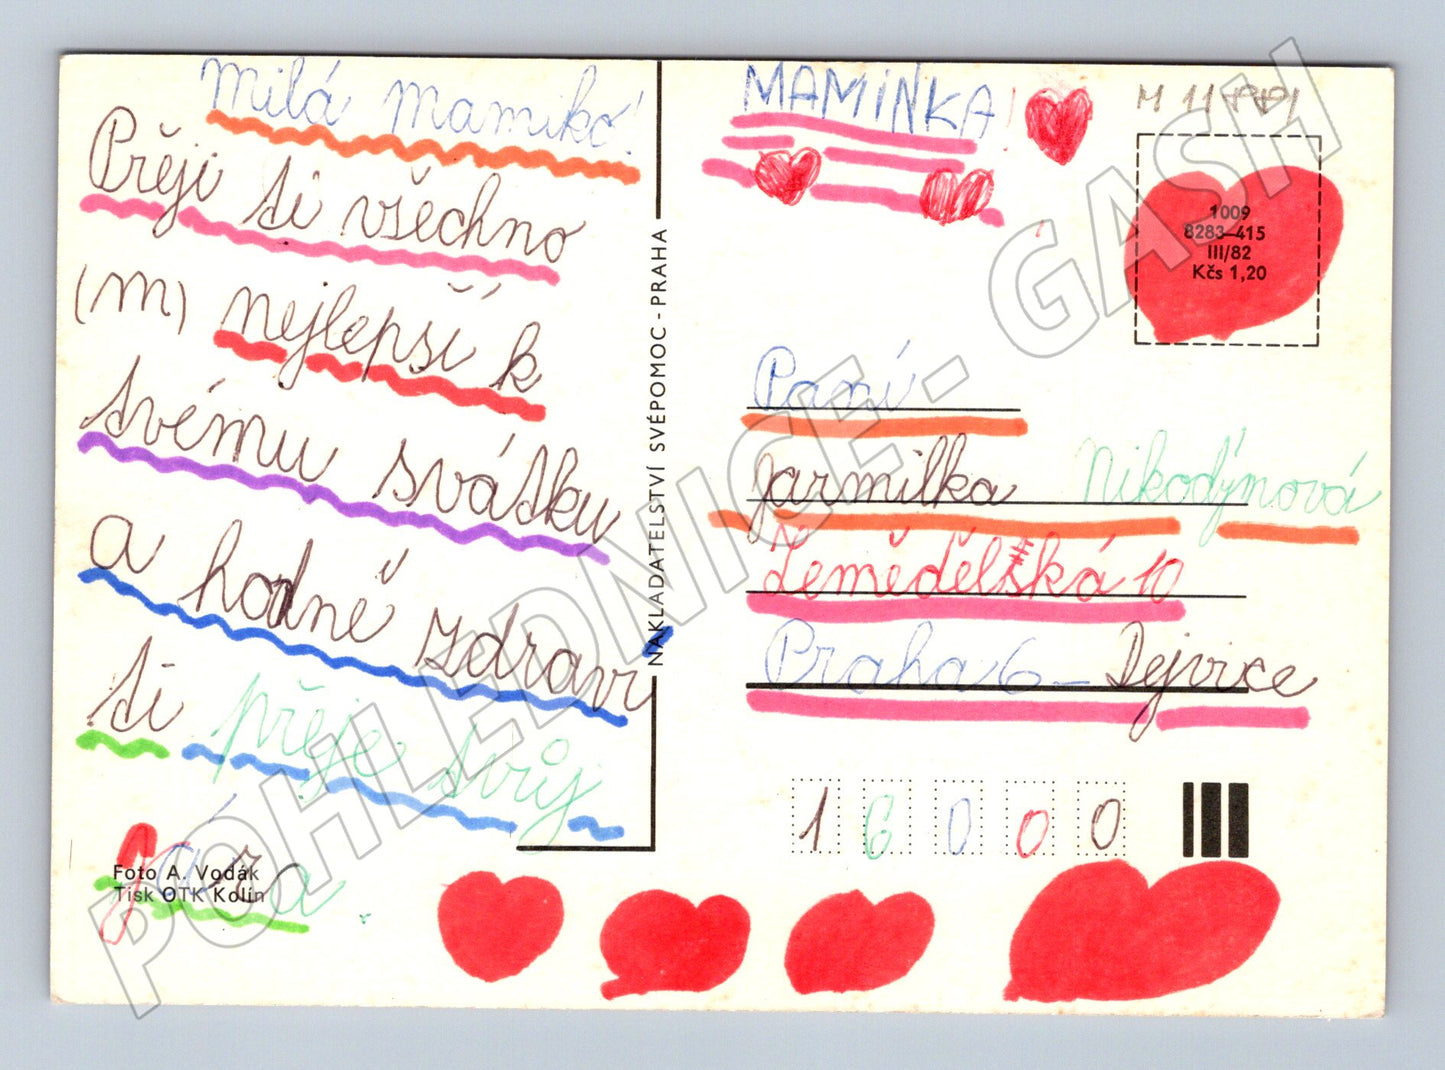 Milá Mamiko!
Přeji ti všechno
(m) nejlepší k
tvému svátku
a hodně zdraví
ti přeje tvůj
Jára
Foto A. Vodák
Tisk OTK Kolín
NAKLADATELSTVÍ SVÉPOMOC - PRAHA
MAMINKA!
1009
8283-415
III/82
Kčs 1,20
Paní
Jarmilka Nikodýmová
Zemědělská 10
Praha 6 - Dejvice
16000
POHLEDNICE - GASH